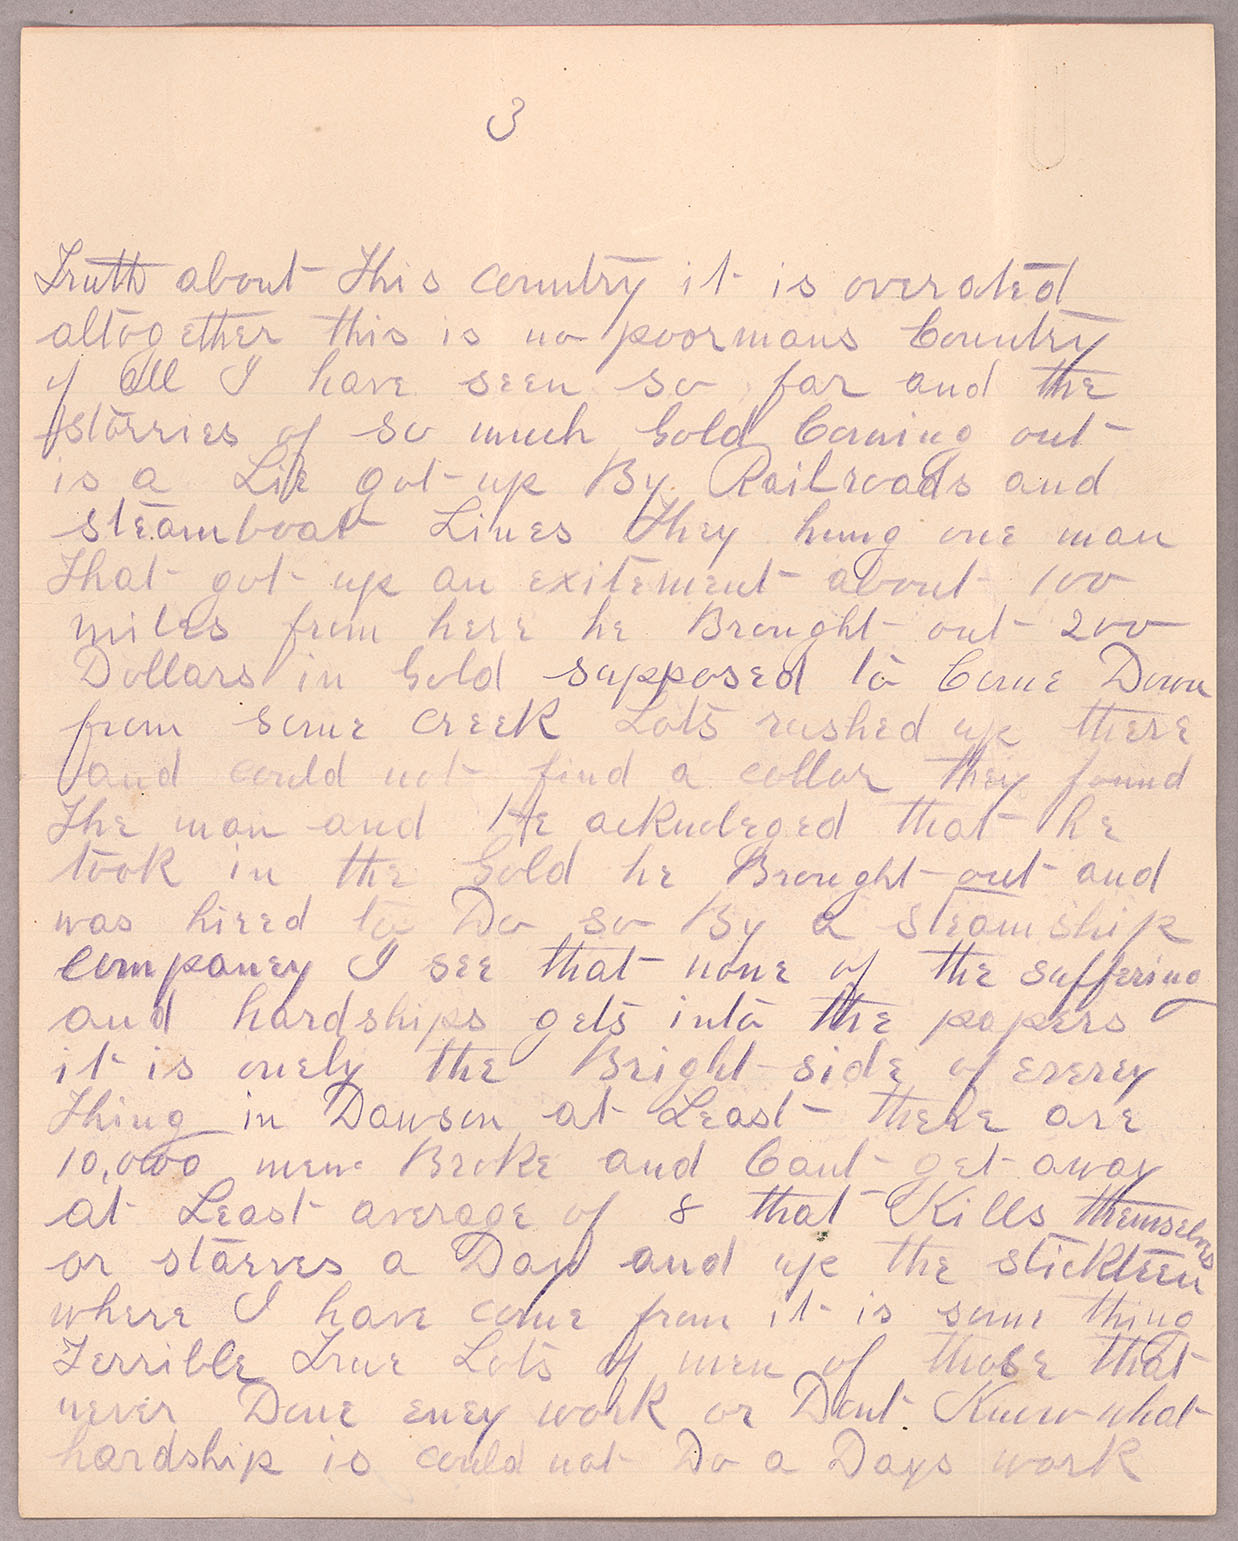 3
Truth about This country it is overated
altogether this is no poormans Country
of all I have seen so far and the
storries of so much Gold Coming out
is a Lie got up By Railroads and
steamboat Lines They hung one man
That got up an exitement about 100
miles from here he Brought out 200
Dollars in Gold supposed to Come Down
from some creek Lots rushed up there
and could not find a collor they found
The man and He acknoleged that he
took in the Gold he Brought out and
was hired to Do so By a steamship
companey I see that none of the suffering
and hardships gets into the papers
it is onely the Bright side of everey
Thing in Dawson at Least there are
10,000 men Broke and Cant get away
at Least average of 8 that Kills themselves
or starves a Day and up the stickteen
where I have come from it is some thing
Terrible True Lots of men of those that
never Done eney work or Dont Know what
hardship is could not Do a Days work